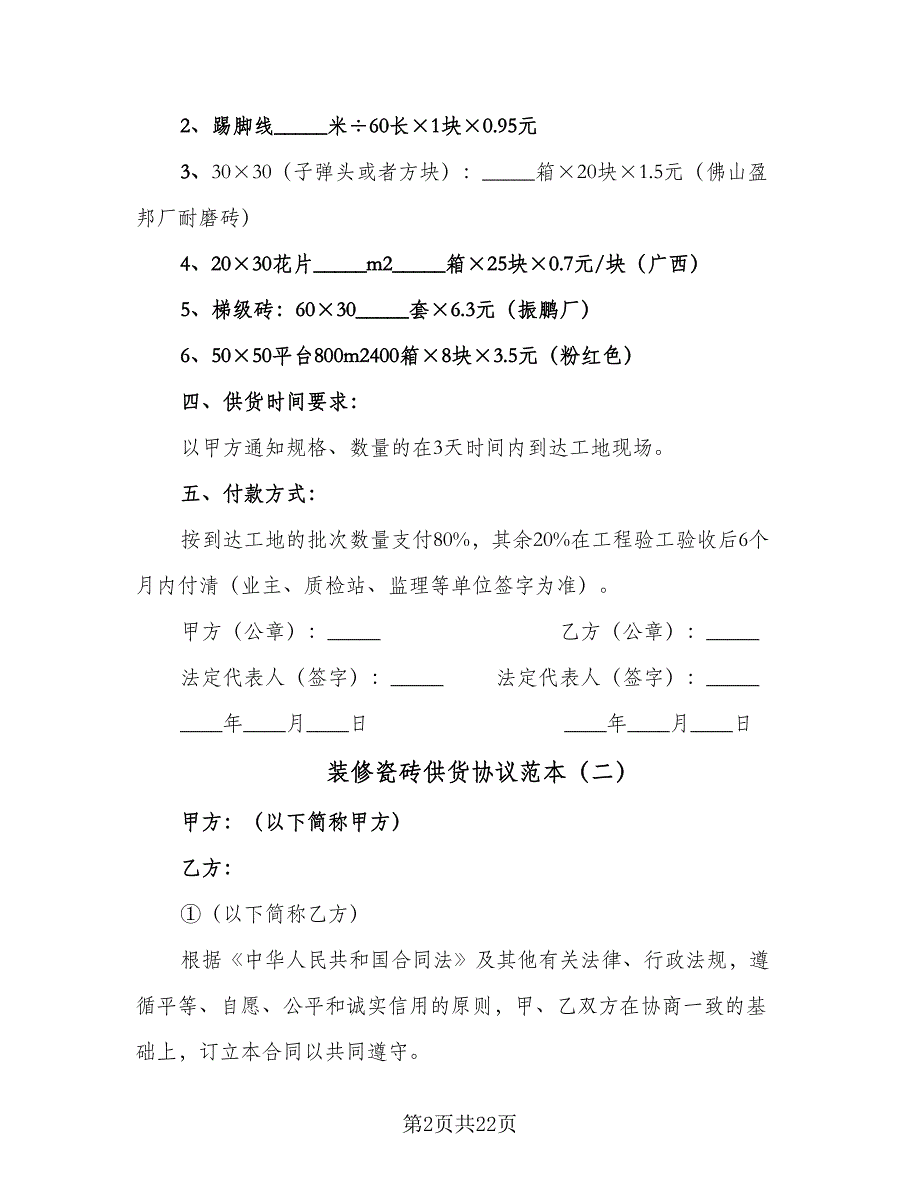 2、踢脚线_____米÷60长×1块×0.95元
3、30×30（子弹头或者方块）：_____箱×20块×1.5元（佛山盈
邦厂耐磨砖）
4、20×30花片_____m2_____箱×25块×0.7元/块（广西）
5、梯级砖：60×30_____套×6.3元（振鹏厂）
6、50×50平台800m2400箱×8块×3.5元（粉红色）
四、供货时间要求：
以甲方通知规格、数量的在3天时间内到达工地现场。
五、付款方式：
按到达工地的批次数量支付80%，其余20%在工程验工验收后6个
月内付清（业主、质检站、监理等单位签字为准）。
甲方（公章）：_____ 乙方（公章）：_____
法定代表人（签字）：_____ 法定代表人（签字）：_____
____年____月____日 ____年____月____日
装修瓷砖供货协议范本（二）
甲方：（以下简称甲方）
乙方：
①（以下简称乙方）
根据《中华人民共和国合同法》及其他有关法律、行政法规，遵
循平等、自愿、公平和诚实信用的原则，甲、乙双方在协商一致的基
础上，订立本合同以共同遵守。
第2页共22页